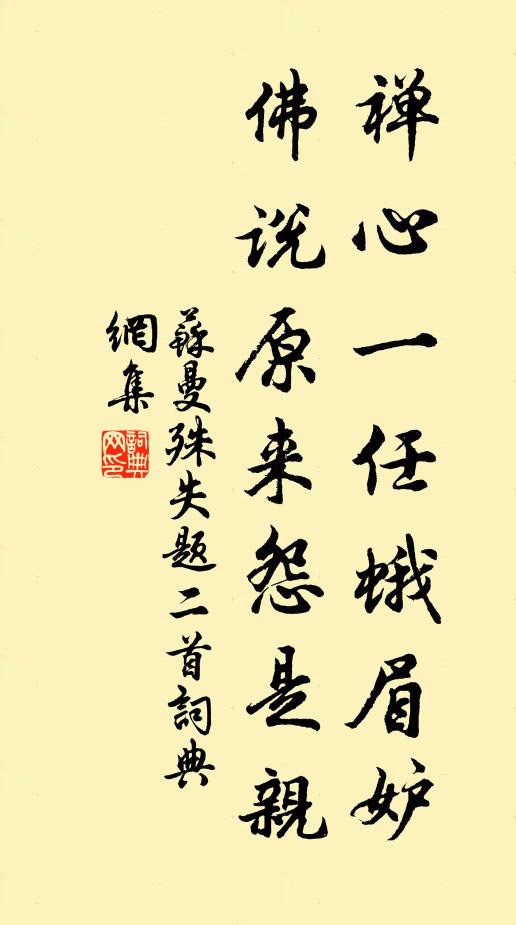 禅心一任蛾眉妒
佛说原来怨是親
蘇曼殊失题二首詞典
網集
詞典
网印